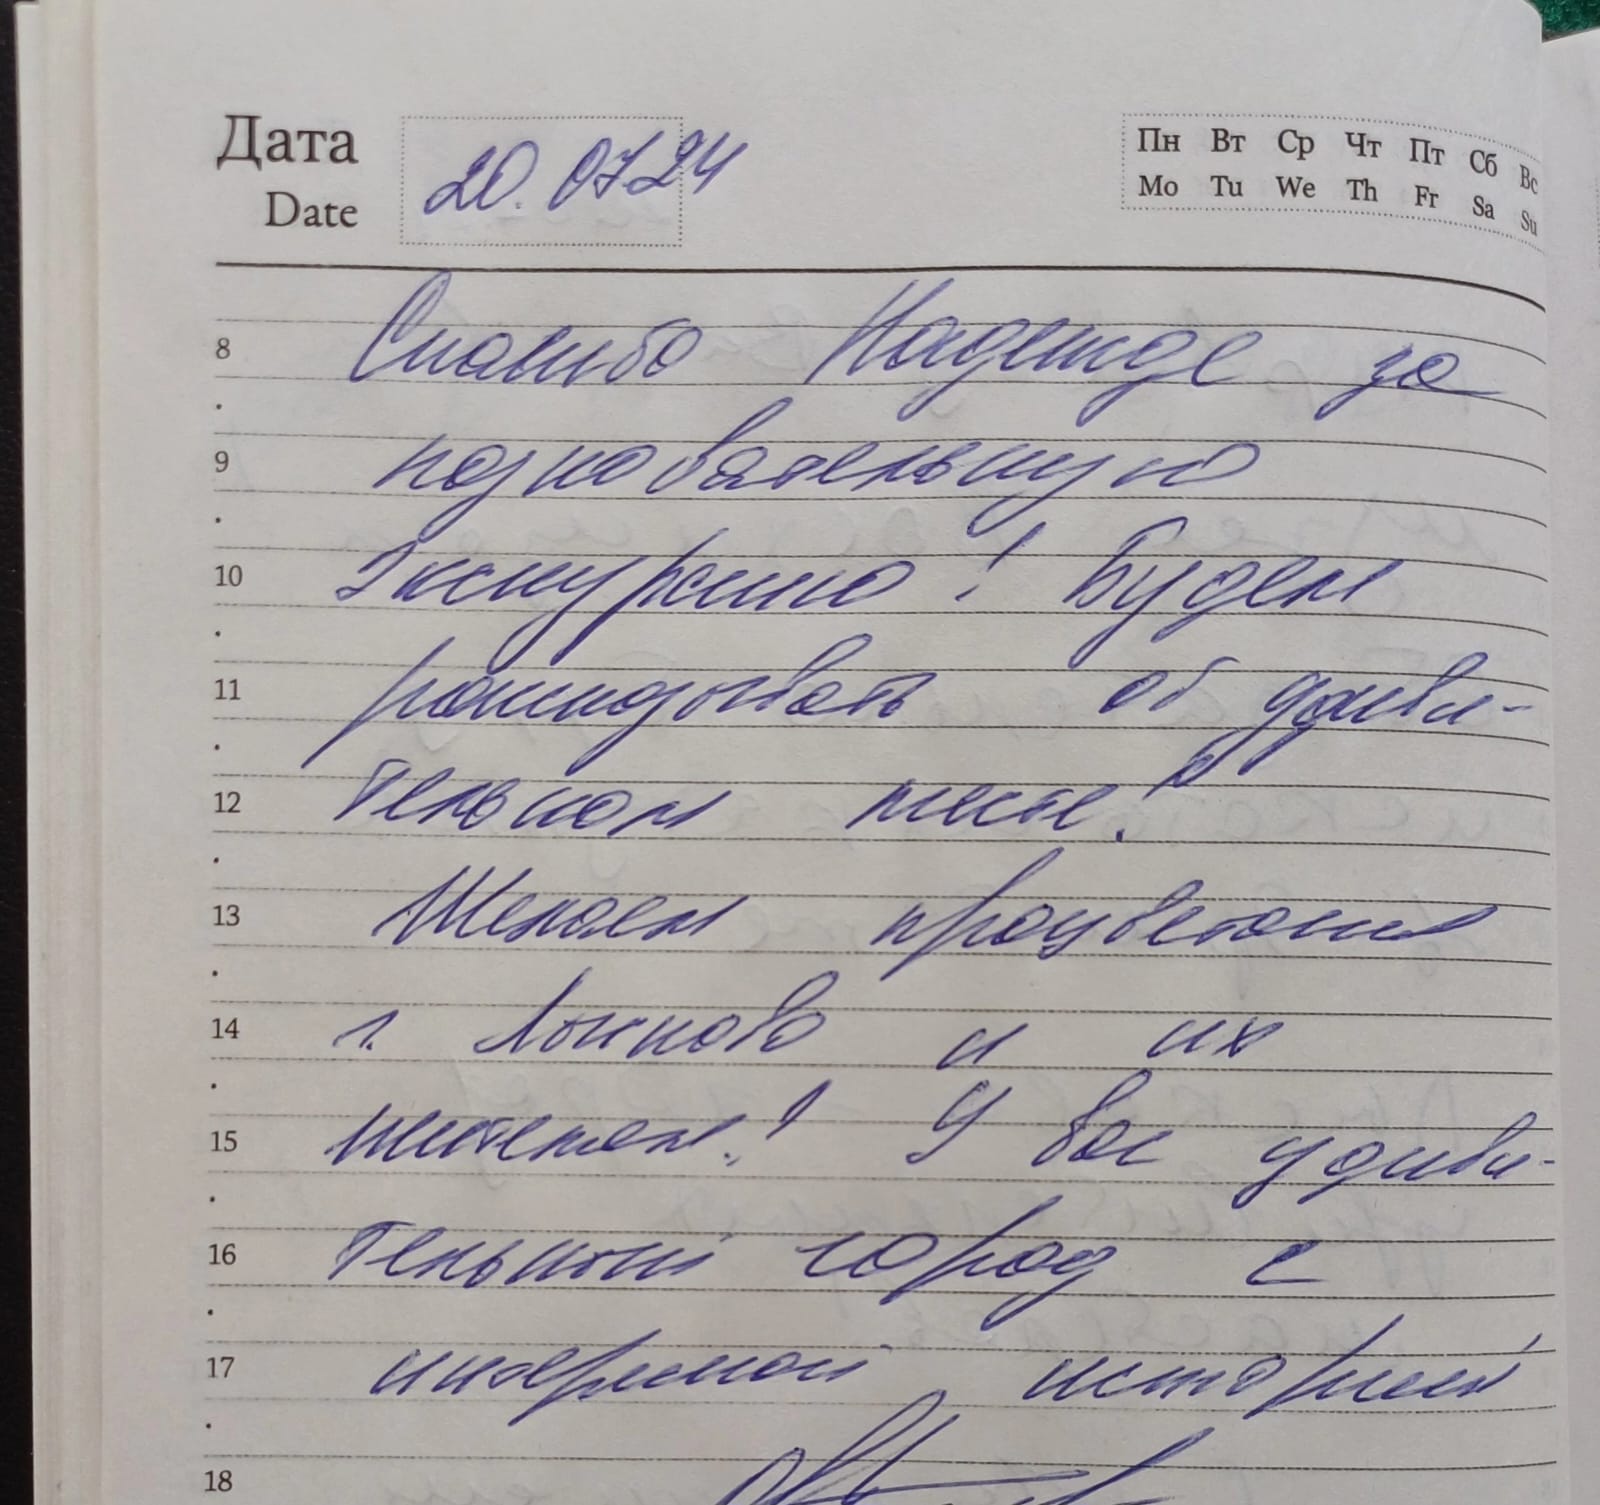 Дата
Date
20.07.24
Пн Вт Ср Чт Пт Сб Вс
Mo Tu We Th Fr Sa Su
8 Спасибо Надежде за
9 познавательную
10 экскурсию! Будем
11 рассказывать об удиви-
12 тельном месте!
13 Желаем процветания
14 г. Лысково и их
15 жителям! У вас удиви-
16 тельный город с
17 интересной историей
18